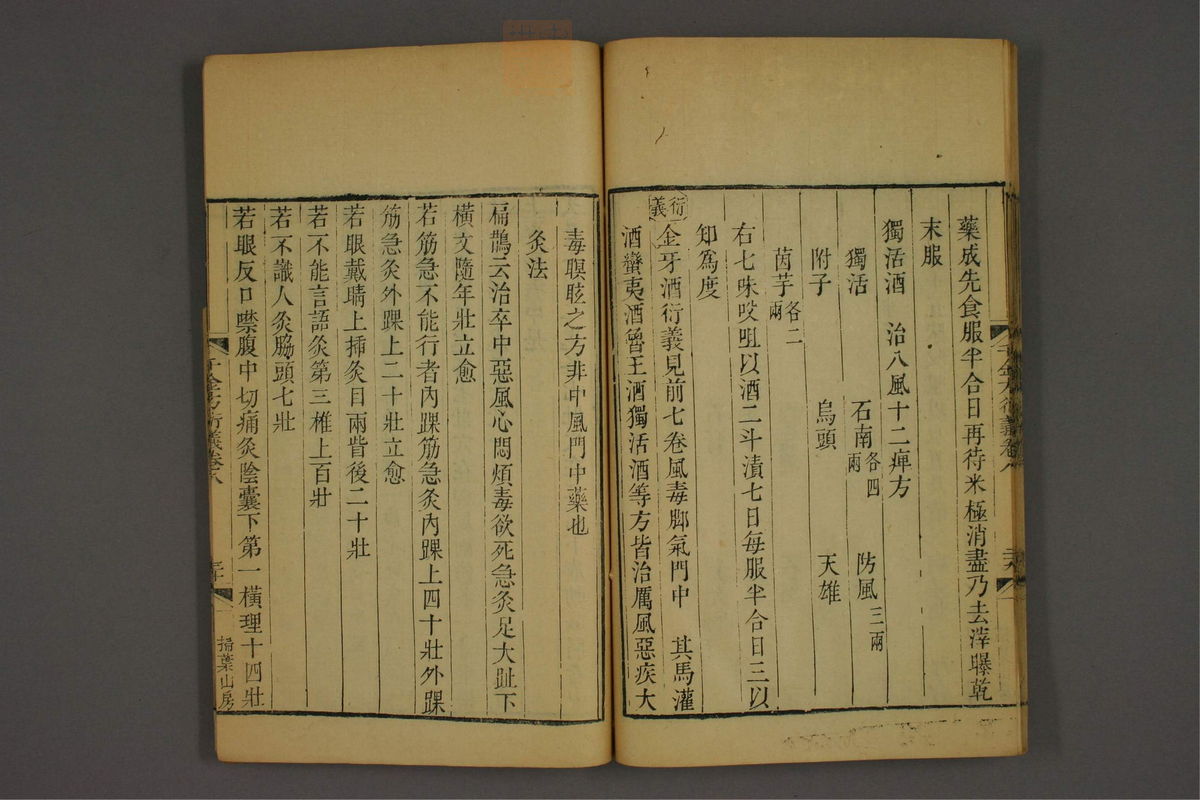 藥成先食服半合日再待米極消盡乃去滓曝乾
末服
獨活酒　治八風十二痺方
獨活　石南各四兩　防風三兩
附子　烏頭　天雄
茵芋各二兩
右七味㕮咀以酒二斗漬七日每服半合日三以
知爲度
衍義　金牙酒衍義見前七卷風毒脚氣門中　其馬灌
酒蠻夷酒魯王酒獨活酒等方皆治厲風惡疾大
毒瞑眩之方非中風門中藥也
灸法
扁鵲云治卒中惡風心悶煩毒欲死急灸足大趾下
橫文隨年壯立愈
若筋急不能行者內踝筋急灸內踝上四十壯外踝
筋急灸外踝上二十壯立愈
若眼戴睛上揷灸目兩眥後二十壯
若不能言語灸第三椎上百壯
若不識人灸脇頭七壯
若眼反口噤腹中切痛灸陰囊下第一橫理十四壯
千金方衍義卷八
掃葉山房